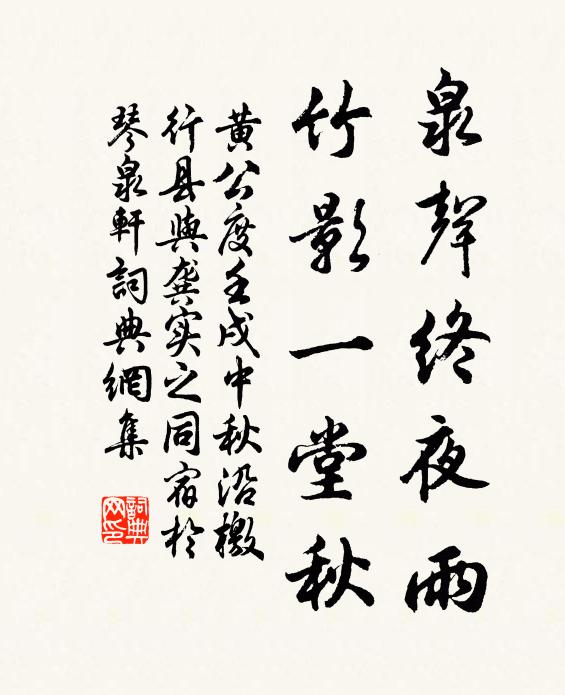 泉聲終夜雨
竹影一堂秋
黄公度壬戌中秋沿檄
行县與龔实之同宿於
琴泉軒詞典網集
詞典网印